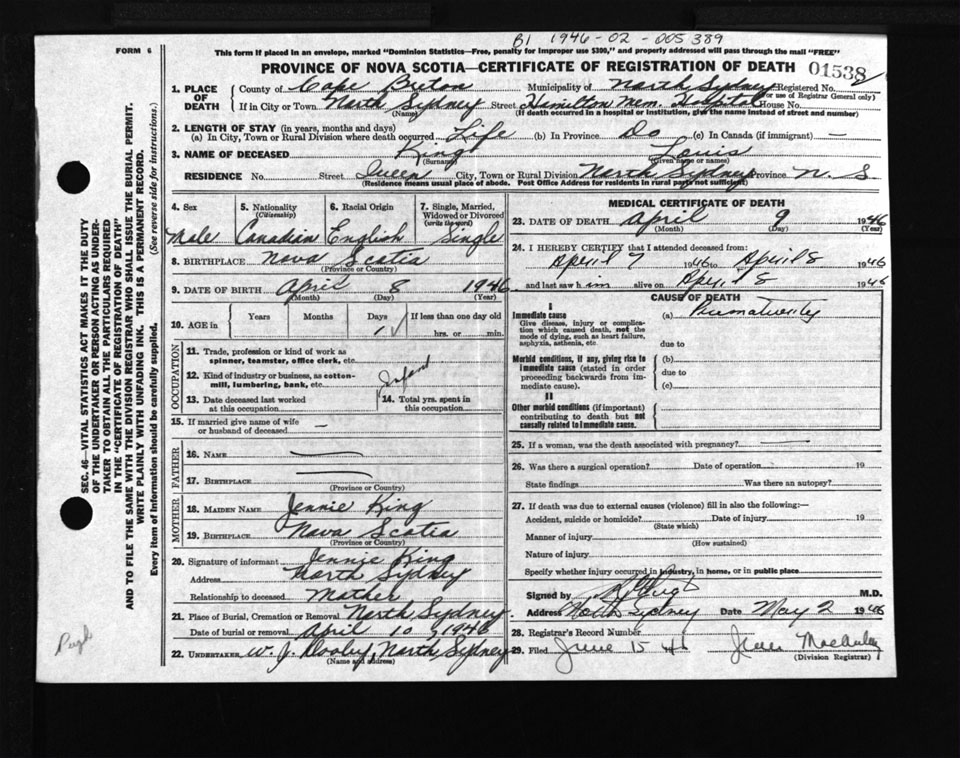 B1 1946-02-005389
FORM 6
This form if placed in an envelope, marked "Dominion Statistics—Free, penalty for improper use $300," and properly addressed will pass through the mail "FREE"
PROVINCE OF NOVA SCOTIA—CERTIFICATE OF REGISTRATION OF DEATH 01538
1. PLACE OF DEATH
County of Cape Breton Municipality of North Sydney Registered No.
(For use of Registrar General only)
If in City or Town North Sydney Street Hamilton Mem. Hospital House No.
(Name) (If death occurred in a hospital or institution, give the name instead of street and number)
2. LENGTH OF STAY (in years, months and days)
(a) In City, Town or Rural Division where death occurred Life (b) In Province Do (c) In Canada (if immigrant) —
3. NAME OF DECEASED King Louis
(Surname) (Given name or names)
RESIDENCE No. Street Queen City, Town or Rural Division North Sydney Province N. S.
(Residence means usual place of abode. Post Office Address for residents in rural parts not sufficient)
4. Sex 5. Nationality (Citizenship) 6. Racial Origin 7. Single, Married, Widowed or Divorced (write the word)
Male Canadian English Single
8. BIRTHPLACE Nova Scotia
(Province or Country)
9. DATE OF BIRTH April 8 1946
(Month) (Day) (Year)
10. AGE in Years Months Days If less than one day old
1 hrs. or min.
OCCUPATION
11. Trade, profession or kind of work as spinner, teamster, office clerk, etc.
12. Kind of industry or business, as cotton-mill, lumbering, bank, etc. Infant
13. Date deceased last worked at this occupation
14. Total yrs. spent in this occupation
15. If married give name of wife or husband of deceased —
FATHER
16. NAME —
17. BIRTHPLACE —
(Province or Country)
MOTHER
18. MAIDEN NAME Jennie King
19. BIRTHPLACE Nova Scotia
(Province or Country)
20. Signature of informant Jennie King
Address North Sydney
Relationship to deceased Mother
21. Place of Burial, Cremation or Removal North Sydney
Date of burial or removal April 10, 1946
22. UNDERTAKER W. J. Dooley, North Sydney
(Name and address)
MEDICAL CERTIFICATE OF DEATH
23. DATE OF DEATH April 9 1946
(Month) (Day) (Year)
24. I HEREBY CERTIFY that I attended deceased from:
April 7 1946 to April 8 1946
and last saw him alive on April 8 1946
CAUSE OF DEATH
I
Immediate cause (a) Prematurity
Give disease, injury or complication which caused death, not the mode of dying, such as heart failure, asphyxia, asthenia, etc.
due to
Morbid conditions, if any, giving rise to immediate cause (stated in order proceeding backwards from immediate cause).
(b)
due to
(c)
II
Other morbid conditions (if important) contributing to death but not causally related to immediate cause.
25. If a woman, was the death associated with pregnancy? —
26. Was there a surgical operation? Date of operation 19
State findings Was there an autopsy?
27. If death was due to external causes (violence) fill in also the following:—
Accident, suicide or homicide? Date of injury 19
(State which)
Manner of injury
(How sustained)
Nature of injury
Specify whether injury occurred in industry, in home, or in public place
Signed by M.D.
Address North Sydney Date May 2 1946
28. Registrar's Record Number
29. Filed June 15 46 Jean
(Division Registrar)
SEC. 46—VITAL STATISTICS ACT MAKES IT THE DUTY
OF THE UNDERTAKER OR PERSON ACTING AS UNDER-
TAKER TO OBTAIN ALL THE PARTICULARS REQUIRED
IN THE "CERTIFICATE OF REGISTRATION OF DEATH"
AND TO FILE THE SAME WITH THE DIVISION REGISTRAR WHO SHALL ISSUE THE BURIAL PERMIT.
WRITE PLAINLY WITH UNFADING INK. THIS IS A PERMANENT RECORD.
Every item of information should be carefully supplied. (See reverse side for instructions.)